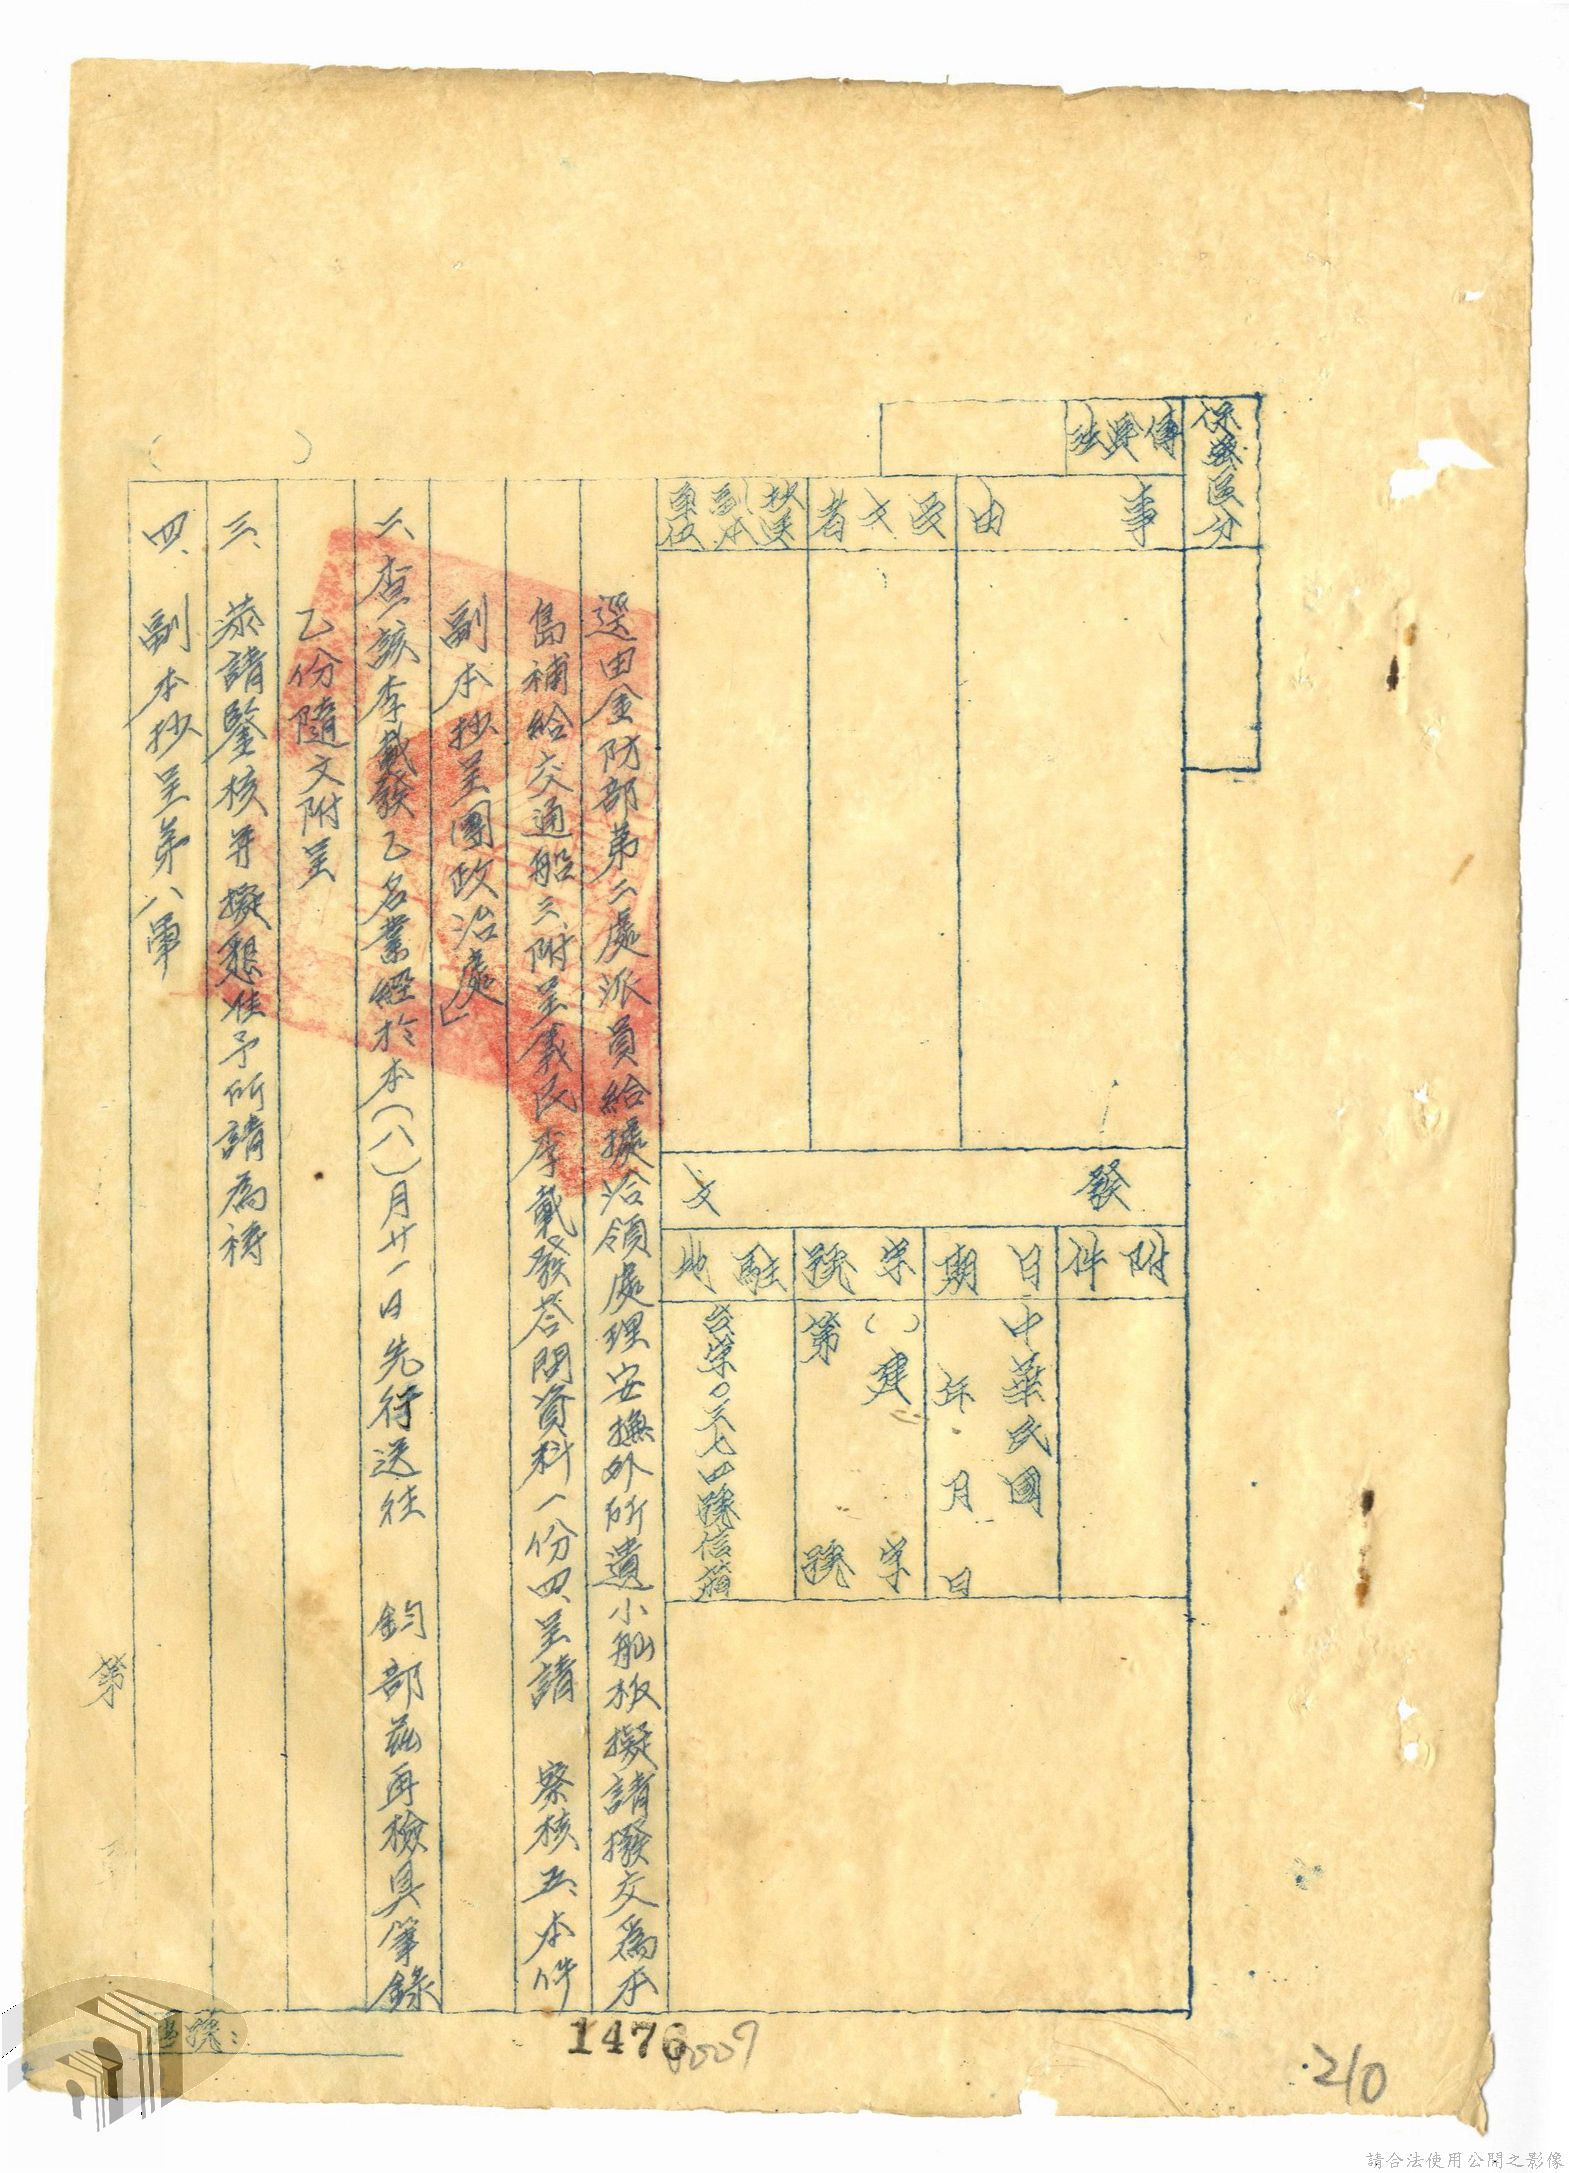 保密區分
傳遞法
事由
受文者
抄送副本單位
發文
附件
日期
中華民國 年 月 日
字號
( )建 字
第 號
駐地
四號信箱
逕由金防部第二處派員給據洽領處理安撫外所遺小舢板擬請撥交為本
島補給交通船三、附呈義民李戴發答問資料一份四、呈請 察核五、本件
副本抄呈團政治處」
二、查該李戴發乙名業經於本(八)月廿一日先行送往 鈞部茲再檢具筆錄
乙份隨文附呈
三、恭請鑒核并擬懇准予所請為禱
四、副本抄呈第八軍
( )
第
號:
1476
0009
210
請合法使用公開之影像